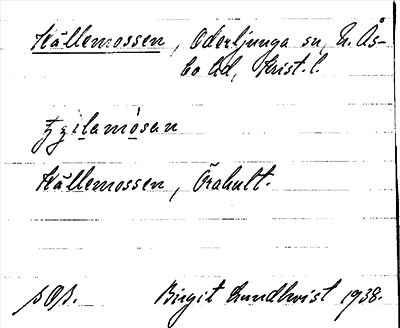 Källemossen, Oderljunga sn, N. Ås-
bo hd, Krist. l.
Källemossen, Örahult.
sOs. Birgit Lundkvist 1938.